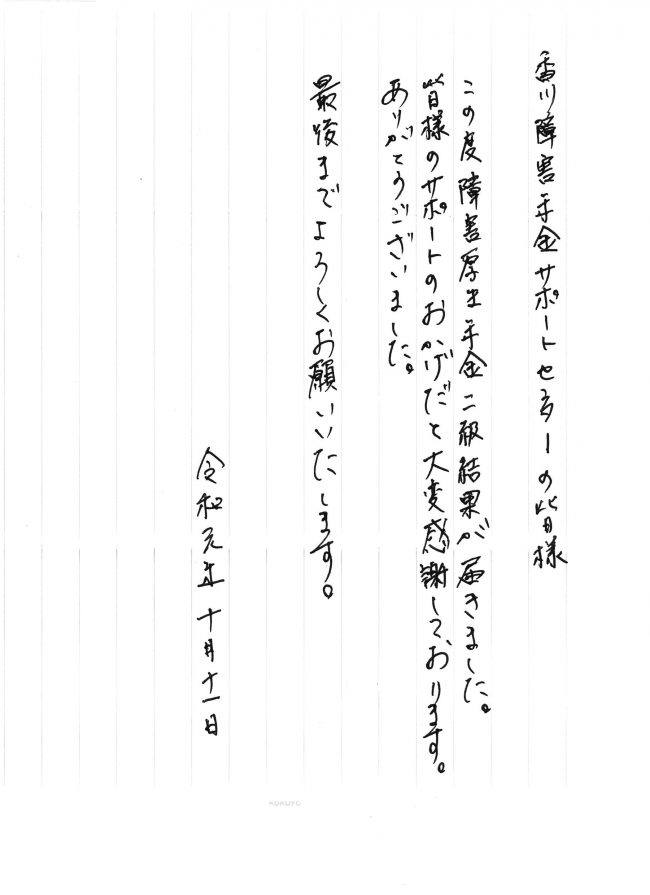 香川障害年金サポートセターの皆様
この度障害厚生年金二級結果が届きました。
皆様のサポートのおかげだと大変感謝しております。
ありがとうございました。
最後までよろしくお願いいたします。
令和元年十月十一日
KOKUYO